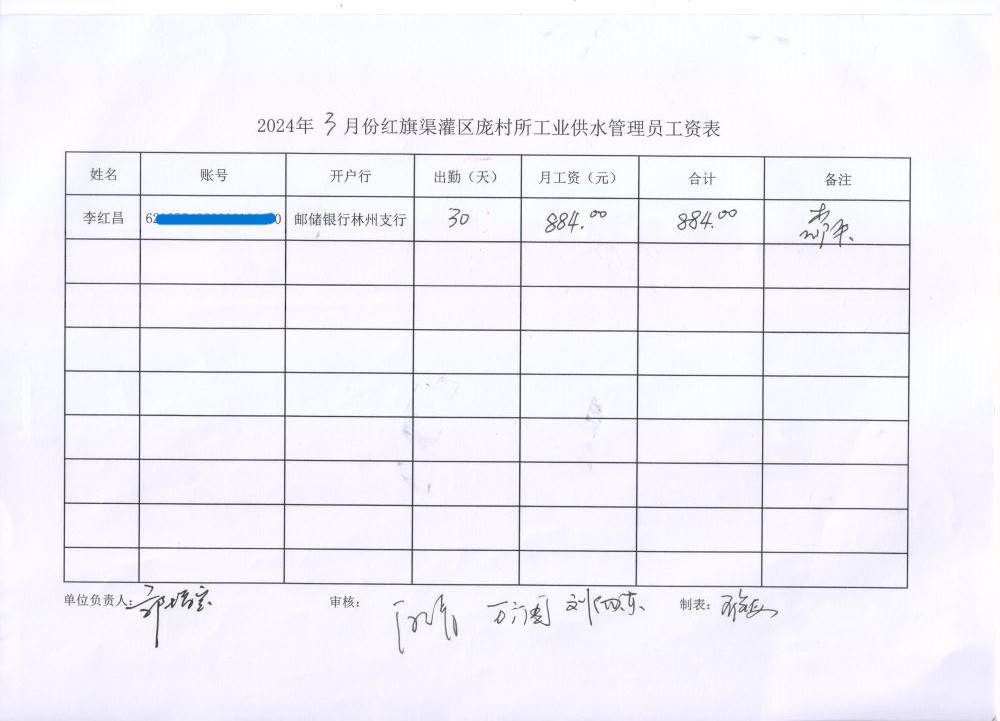 2024年 3 月份红旗渠灌区庞村所工业供水管理员工资表
姓名 账号 开户行 出勤（天） 月工资（元） 合计 备注
李红昌 62 0 邮储银行林州支行 30 884.00 884.00
单位负责人： 审核： 制表：